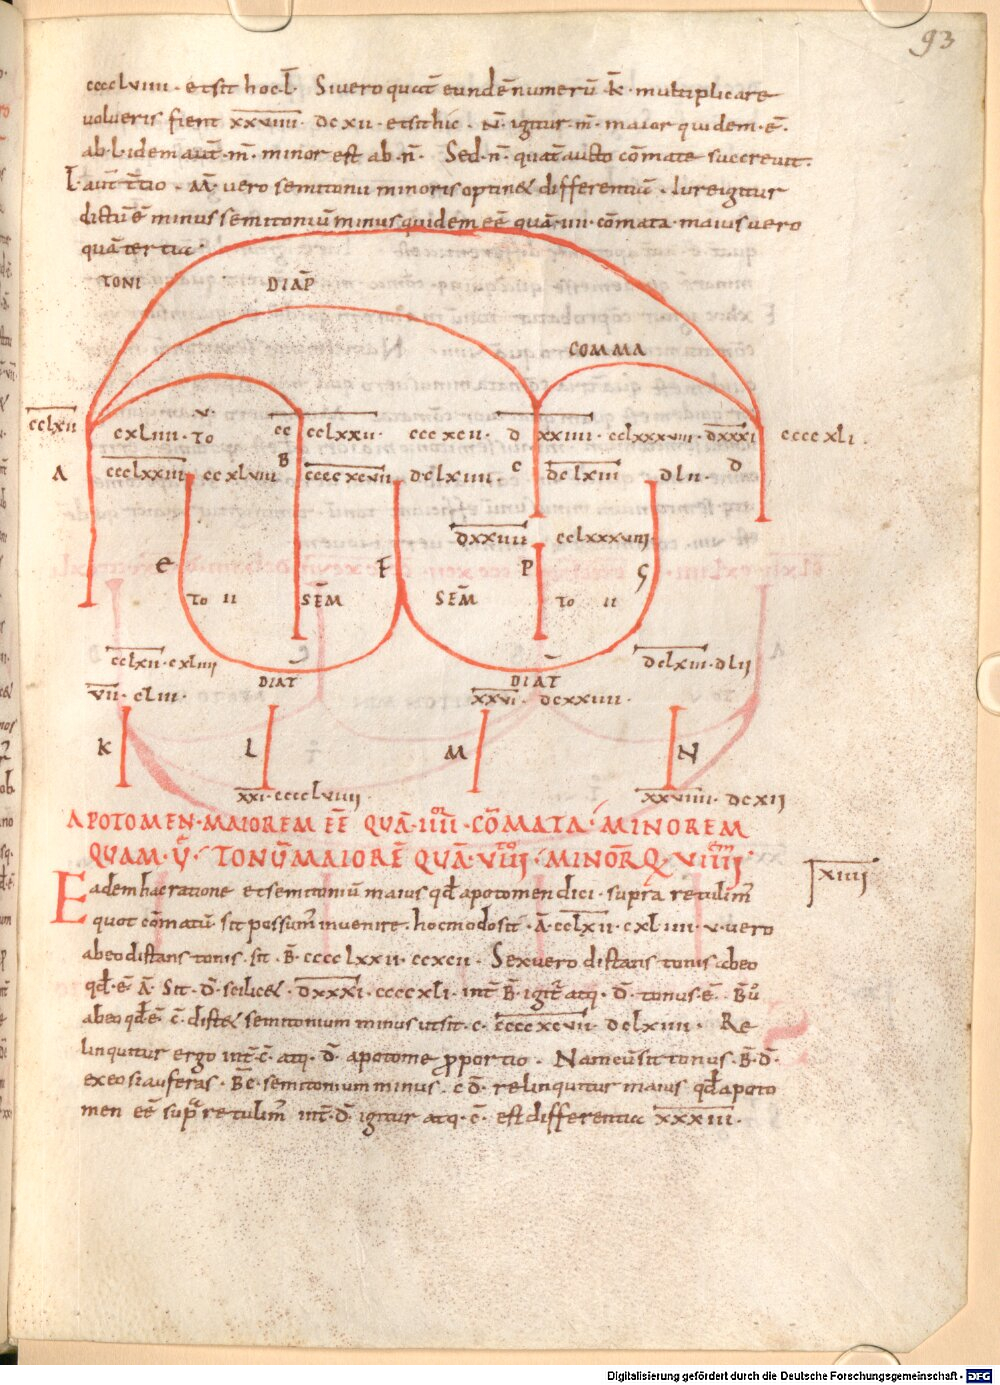 93
ccccLviiii · et sit hoc·L̄· Si vero quat̄ eundē numerū ·k̄· multiplicare
volueris fient x̄x̄v̄īīīī · dcxii · et sit hic · N̄· igitur ·m̄· maior quidem ·ē·
ab·L· idem aut̄ ·m̄· minor est ab ·n̄· Sed ·n̄· quat̄ aucto cōmate succrevit·
L̄· aut̄ t̄tio · M̄· vero semitonii minoris optinet differentiā · Iure igitur
dictū ē minus semitoniū minus quidem eē quā ·iiii· cōmata· maius vero
quā tertia·
TONI DIAP̄
COMMA
c̄c̄l̄x̄īī cxLiiii · To ·v· c̄c̄ c̄c̄l̄x̄x̄īī· ccc xcii · d̄ x̄x̄īīīī · ccLxxxviiii · d̄x̄x̄x̄ī cccc xLi ·
A c̄c̄c̄c̄l̄x̄x̄īīī ccxLviii B c̄c̄c̄c̄x̄c̄v̄īī dcLxiiii · C d̄c̄l̄x̄īīī dLii · D
d̄x̄x̄īīīī ccLxxxviiii·
E F P G
To ii SĒM SĒM To ii
c̄c̄l̄x̄īī · cxLiiii d̄c̄l̄x̄īīī · dLii
DIAT̄ DIAT̄
v̄īī · cLiii · x̄x̄v̄ī · dcxxiiii ·
K L M N
x̄x̄ī · ccccLviiii x̄x̄v̄īīīī · dcxii
APOTOMEN · MAIOREM EĒ QUĀ · IIII · CŌMATA · MINOREM
QUAM · V̄ · TONŪ MAIORĒ QUĀ · VIII · MINOR̄ Q · VIIII ·
Eadem hac ratione et semitoniū maius qd̄ apotomen dici · supra retulim̄
x̄īīīī
quot cōmatū · sit possum̄ invenire · hoc modo sit · Ā · c̄c̄l̄x̄īī · cxLiiii · v · vero
ab eo distans tonis · sit · B̄ · ccccLxxii · ccxcii · Sex vero distans tonis ab eo
qd̄ · ē · Ā · Sit · D̄ · scilicet · d̄x̄x̄x̄ī · ccccxLi · int̄ B̄ · igit̄ atq · D̄ · tonus · ē · B̄ ū
ab eo qd̄ ē · C̄ · distet semitonium minus ut sit · c · c̄c̄c̄c̄x̄c̄v̄īī · dcLxiiii · Re
linquitur ergo int̄ · C̄ · atq · D̄ · apotome p̱portio · Nam cū sit tonus · B̄ · D̄ ·
ex eo si auferas · B̄ c̄ · semitonium minus · c D̄ · relinquitur maius qd̄ apoto
men eē sup̄ retulim̄ int̄ · D̄ · igitur atq · C̄ · est differentia x̄x̄x̄īīī ·
Digitalisierung gefördert durch die Deutsche Forschungsgemeinschaft - DFG